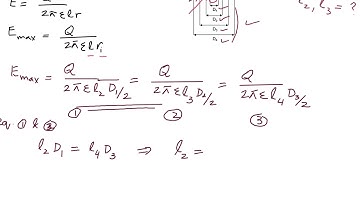 E = Q / 2πεlr
l₂, l₃ = ?
E_max = Q / 2πεlr₁
E_max = Q / 2πεl₂D₁/2 = Q / 2πεl₃D₂/2 = Q / 2πεl₄D₃/2
① ② ③
eq ① & ③
l₂D₁ = l₄D₃ ⇒ l₂ =